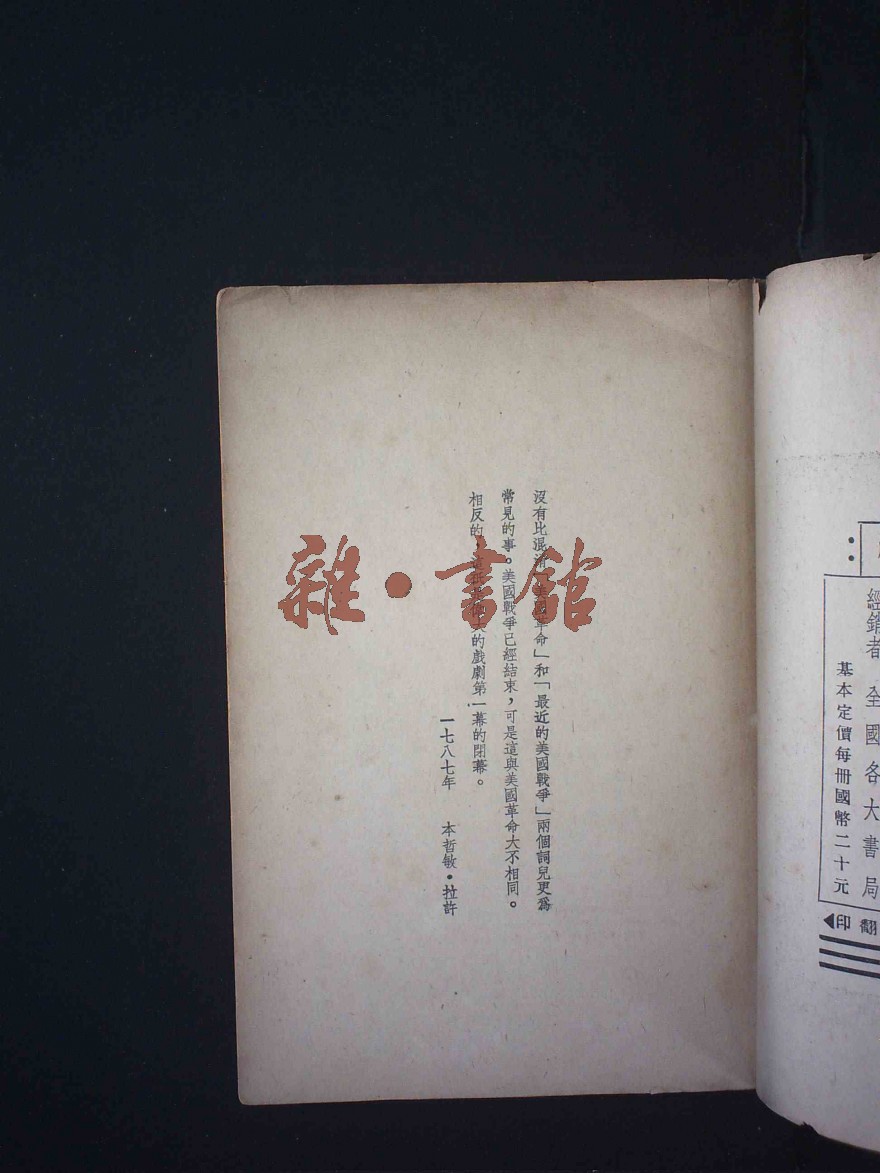 沒有比混淆「美國革命」和「最近的美國戰爭」兩個詞兒更為
常見的事。美國戰爭已經結束，可是這與美國革命大不相同。
相反的，這祇是偉大的戲劇第一幕的閉幕。
一七八七年 本哲敏•拉許
雜•書館
經銷者 全國各大書局
基本定價每冊國幣二十元
翻印